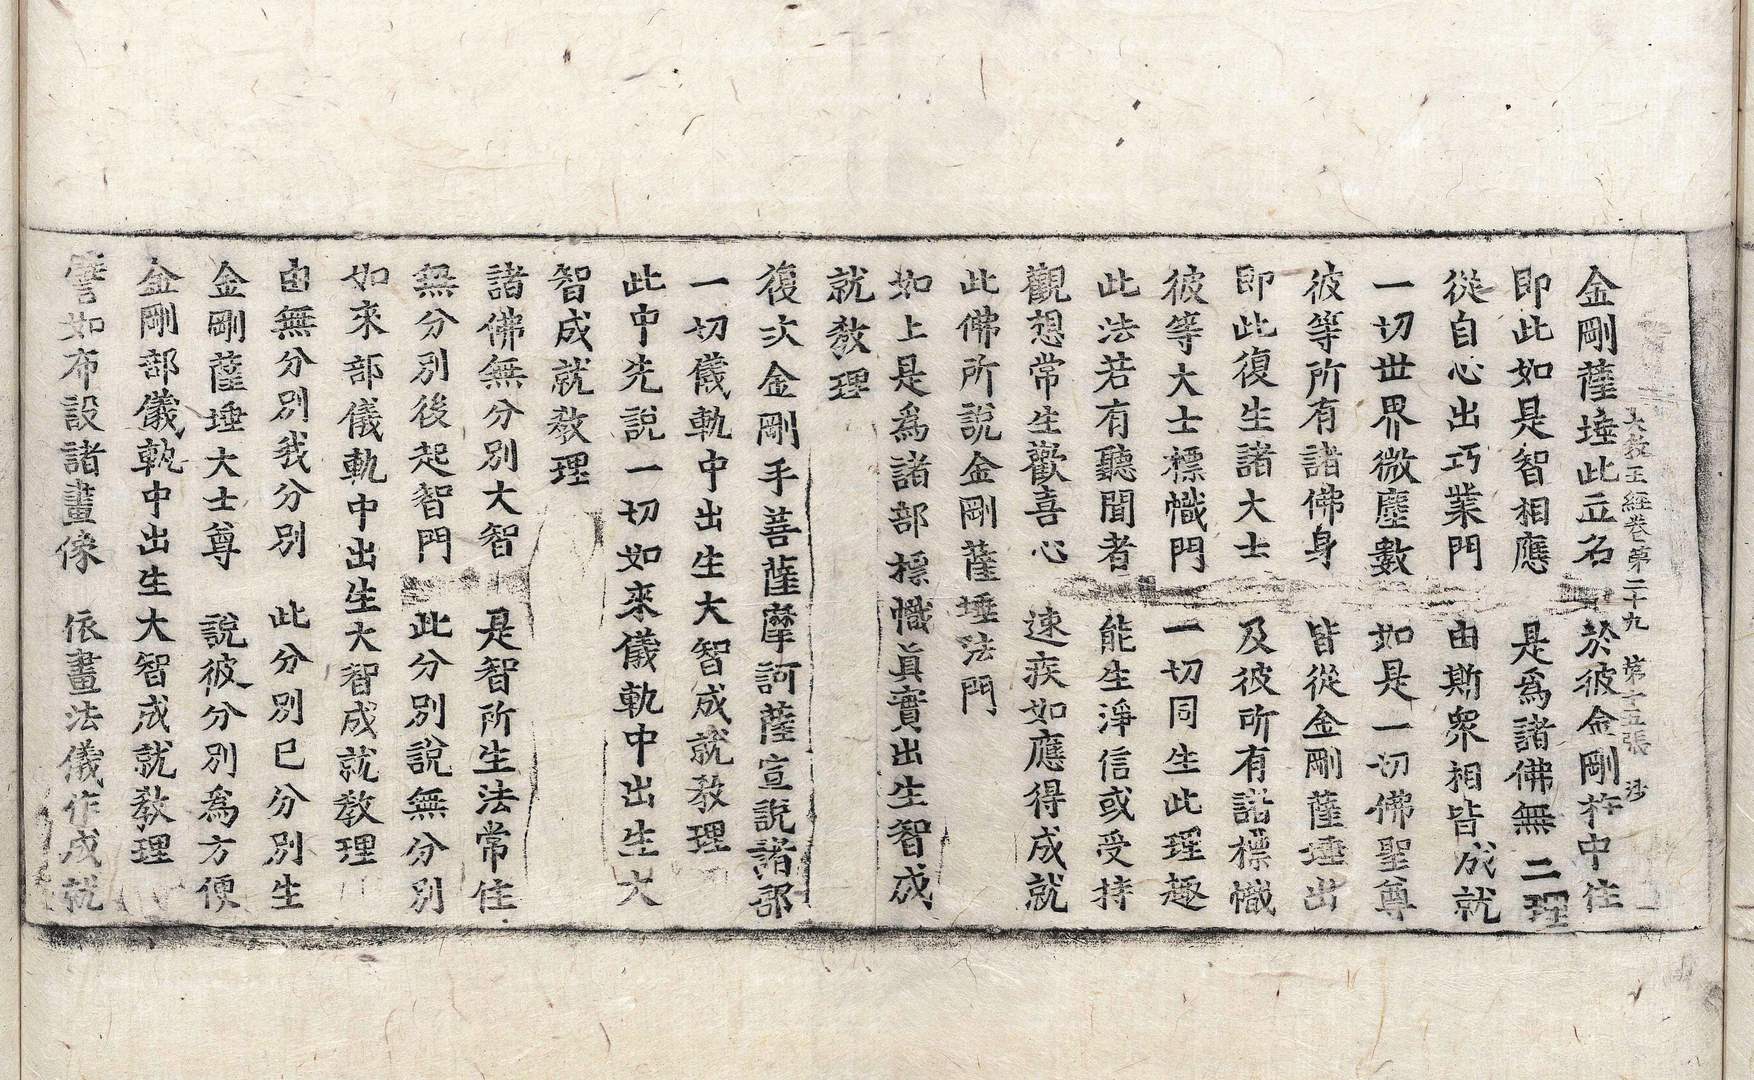 大敎王經卷第二十九　第十五張　沙
金剛薩埵此立名　於彼金剛杵中住
即此如是智相應　是爲諸佛無二理
從自心出巧業門　由斯衆相皆成就
一切世界微塵數　如是一切佛聖尊
彼等所有諸佛身　皆從金剛薩埵出
即此復生諸大士　及彼所有諸標幟
彼等大士標幟門　一切同生此理趣
此法若有聽聞者　能生淨信或受持
觀想常生歡喜心　速疾如應得成就
此佛所說金剛薩埵法門
如上是爲諸部標幟眞實出生智成
就敎理
復次金剛手菩薩摩訶薩宣說諸部
一切儀軌中出生大智成就敎理
此中先說一切如來儀軌中出生大
智成就敎理
諸佛無分別大智　是智所生法常住
無分別後起智門　此分別說無分別
如來部儀軌中出生大智成就敎理
由無分別我分別　此分別已分別生
金剛薩埵大士尊　說彼分別爲方便
金剛部儀軌中出生大智成就敎理
譬如布設諸畫像　依畫法儀作成就